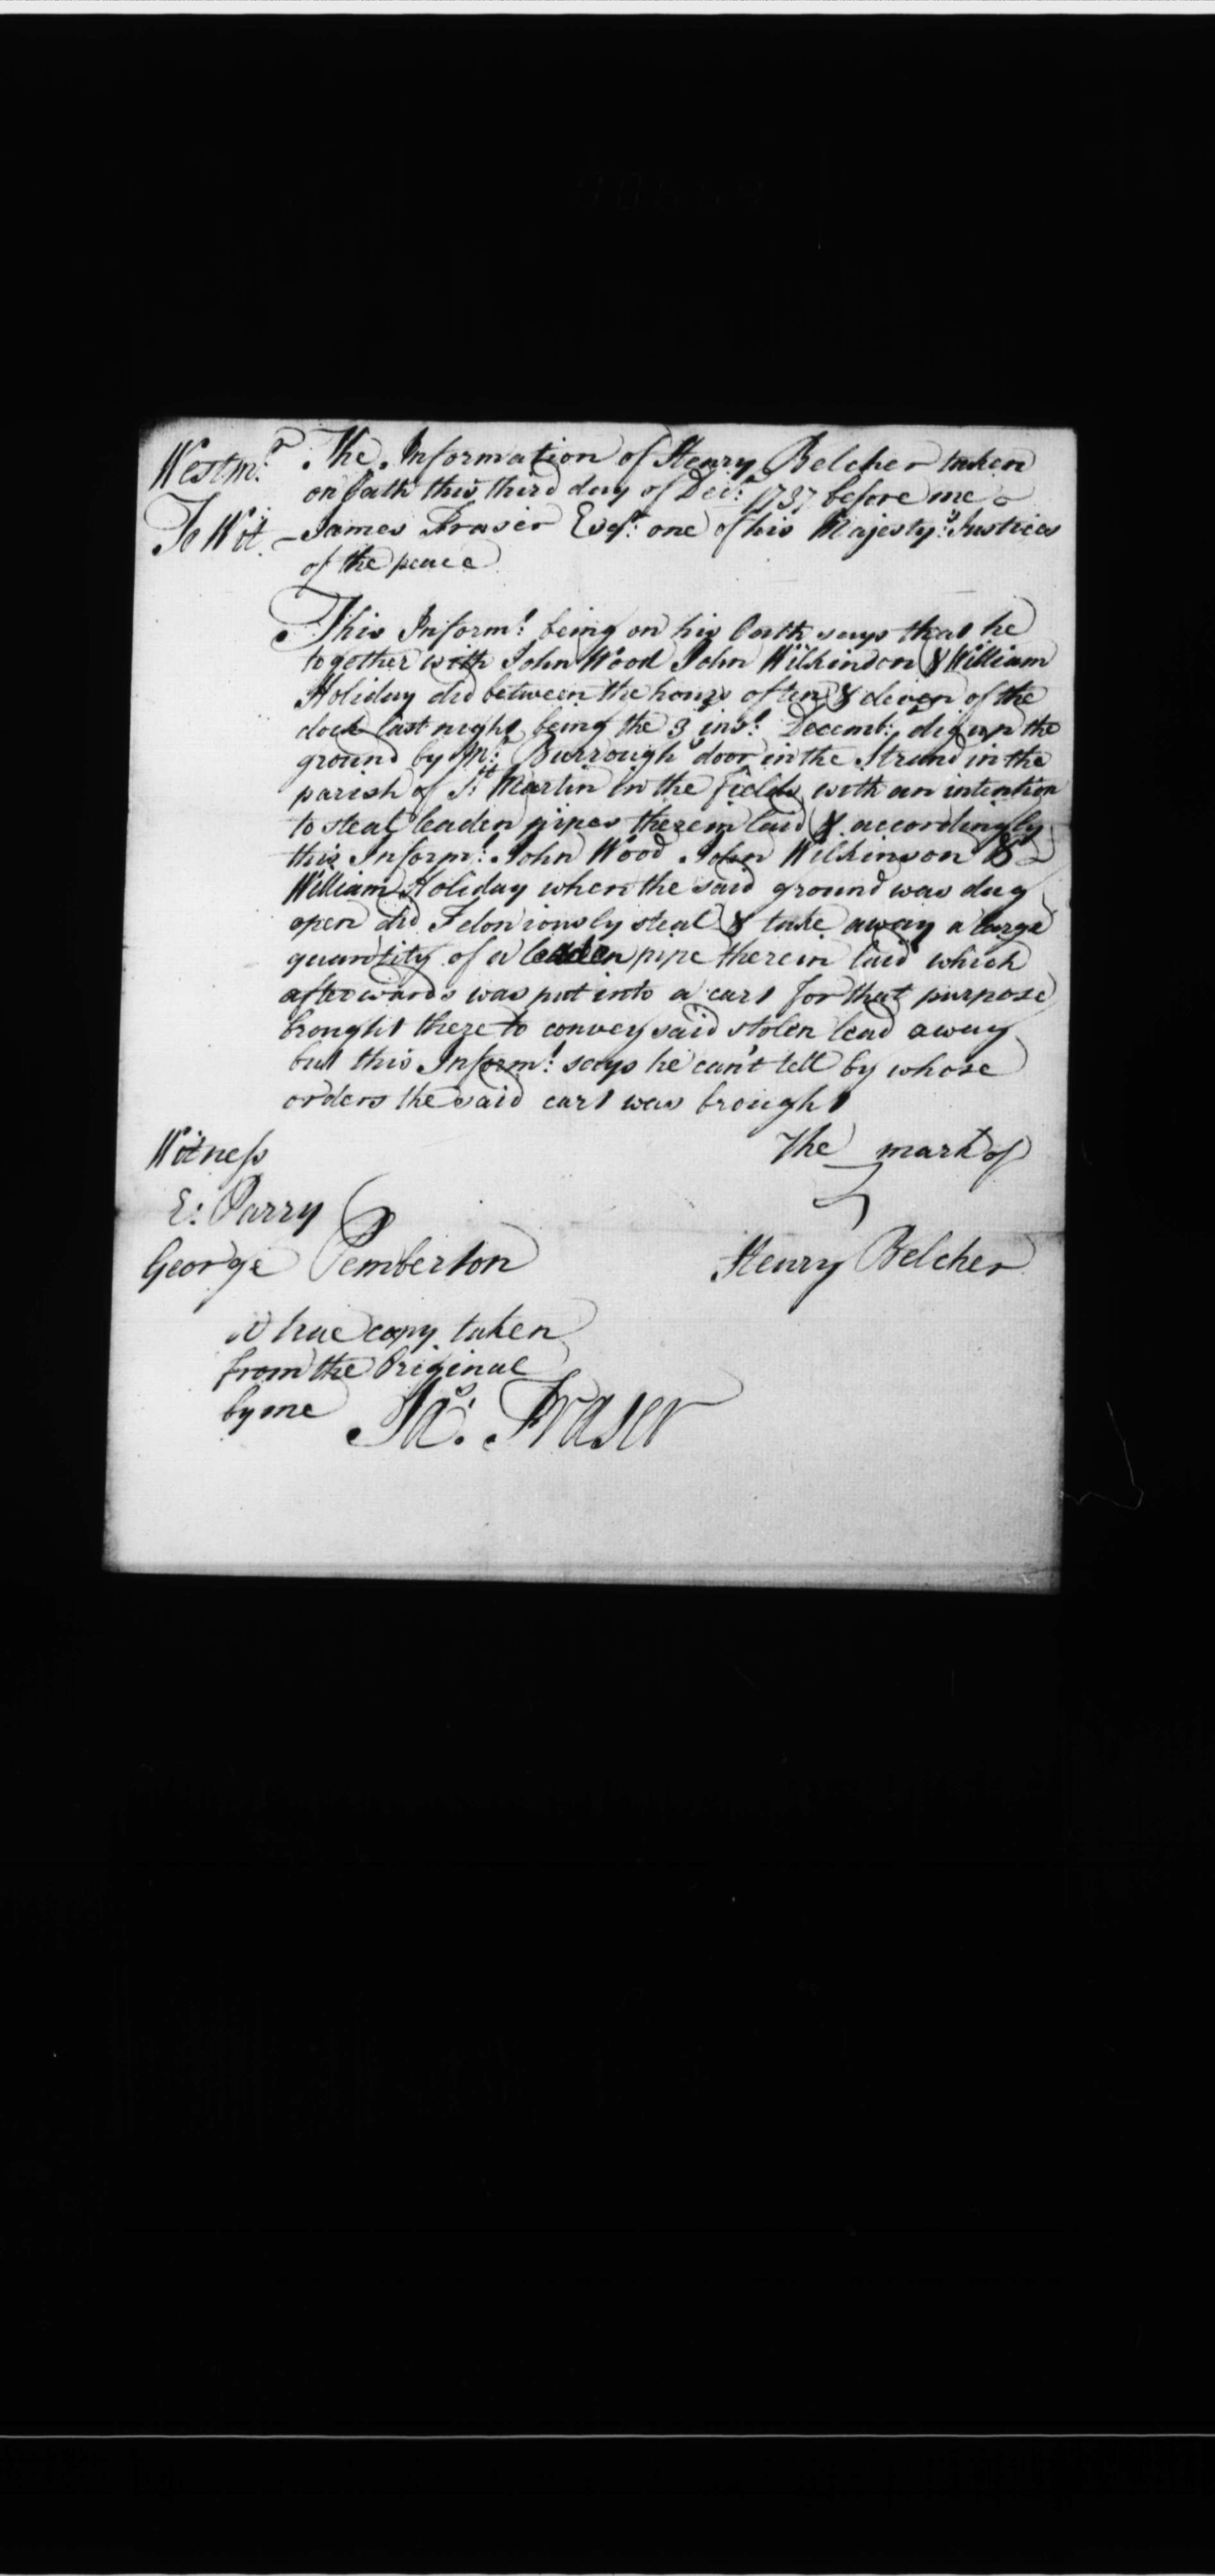 Westm.r The Information of Henry Belcher taken
on Oath this third day of Dec.r 1737 before me
To Wit. James Fraser Esq.r one of his Majesty.s Justices
of the peace
This Inform.t being on his Oath says that he
together with John Wood John Wilkinson & William
Holiday did between the hours of ten & eleven of the
clock last night being the 3 ins.t Decemb.r dig up the
ground by M.r Burrough's door in the Strand in the
parish of S.t Martin in the Fields with an intention
to steal leaden pipes therein laid & accordingly
this Inform.t John Wood John Wilkinson &
William Holiday when the said ground was dug
open did Feloniously steal & take away a large
quantity of a leaden pipe therein laid which
afterwards was put into a cart for that purpose
brought there to convey said stolen lead away
but this Inform.t says he can't tell by whose
orders the said cart was brought
Witness The mark of
E: Parry
George Pemberton Henry Belcher
A true copy taken
from the Original
by me Ja.s Fraser